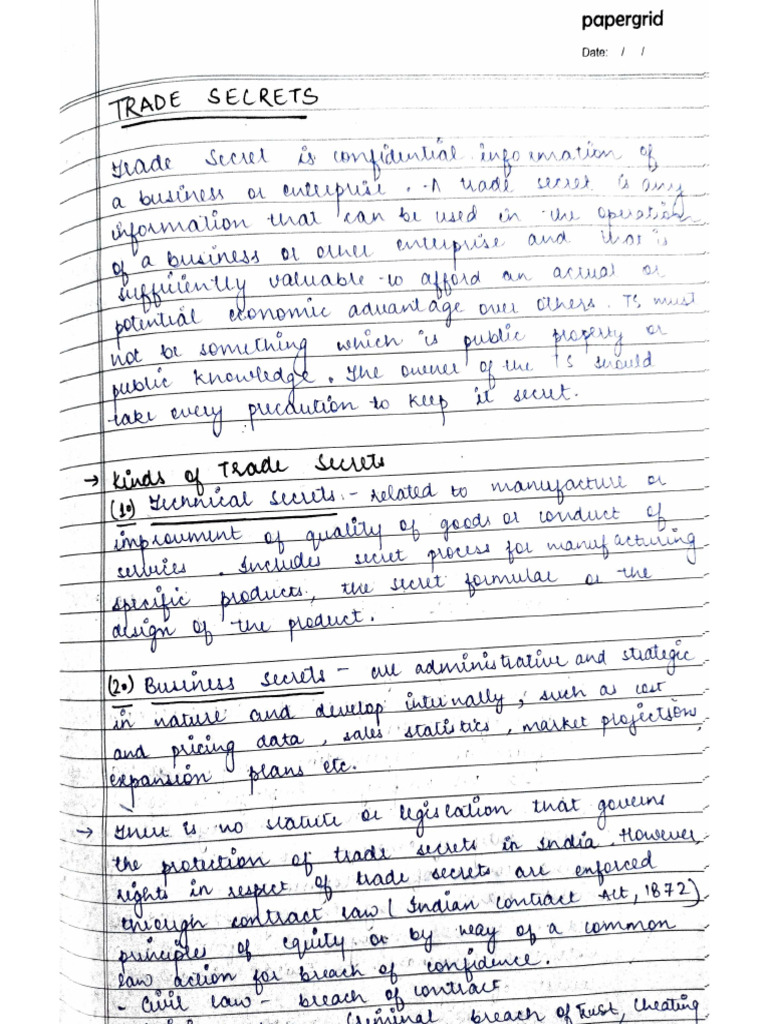 papergrid
Date: / /
TRADE SECRETS
Trade Secret is confidential information of
a business or enterprise. A trade secret is any
information that can be used in the operation
of a business or other enterprise and that is
sufficiently valuable to afford an actual or
potential economic advantage over others. TS must
not be something which is public property or
public knowledge. The owner of the TS should
take every precaution to keep it secret.
→ Kinds of Trade Secrets
(1.) Technical Secrets :- related to manufacture or
improvment of quality of goods or conduct of
services. Includes secret process for manufacturing
specific products, the secret formulae or the
design of the product.
(2.) Business Secrets - are administrative and strategic
in nature and develop internally, such as cost
and pricing data, sales statistics, market projections,
expansion plans etc.
→ There is no statute or legislation that governs
the protection of trade secrets in India. However,
rights in respect of trade secrets are enforced
through contract law (Indian Contract Act, 1872)
principles of equity or by way of a common
law action for breach of confidence.
- Civil law - breach of contract
Criminal breach of Trust, Cheating